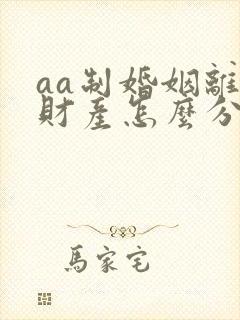 aa制婚姻離
財產怎麼分
馬家宅